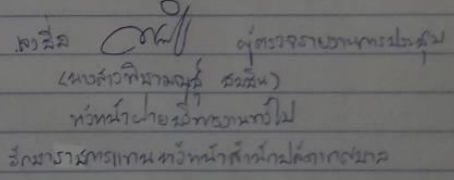 ลงชื่อ ผู้ตรวจรายงานการประชุม
(นางสาวพิชามญชุ์)
หัวหน้าฝ่ายบริหารงานทั่วไป
รักษาราชการแทน หัวหน้าสำนักปลัดเทศบาล